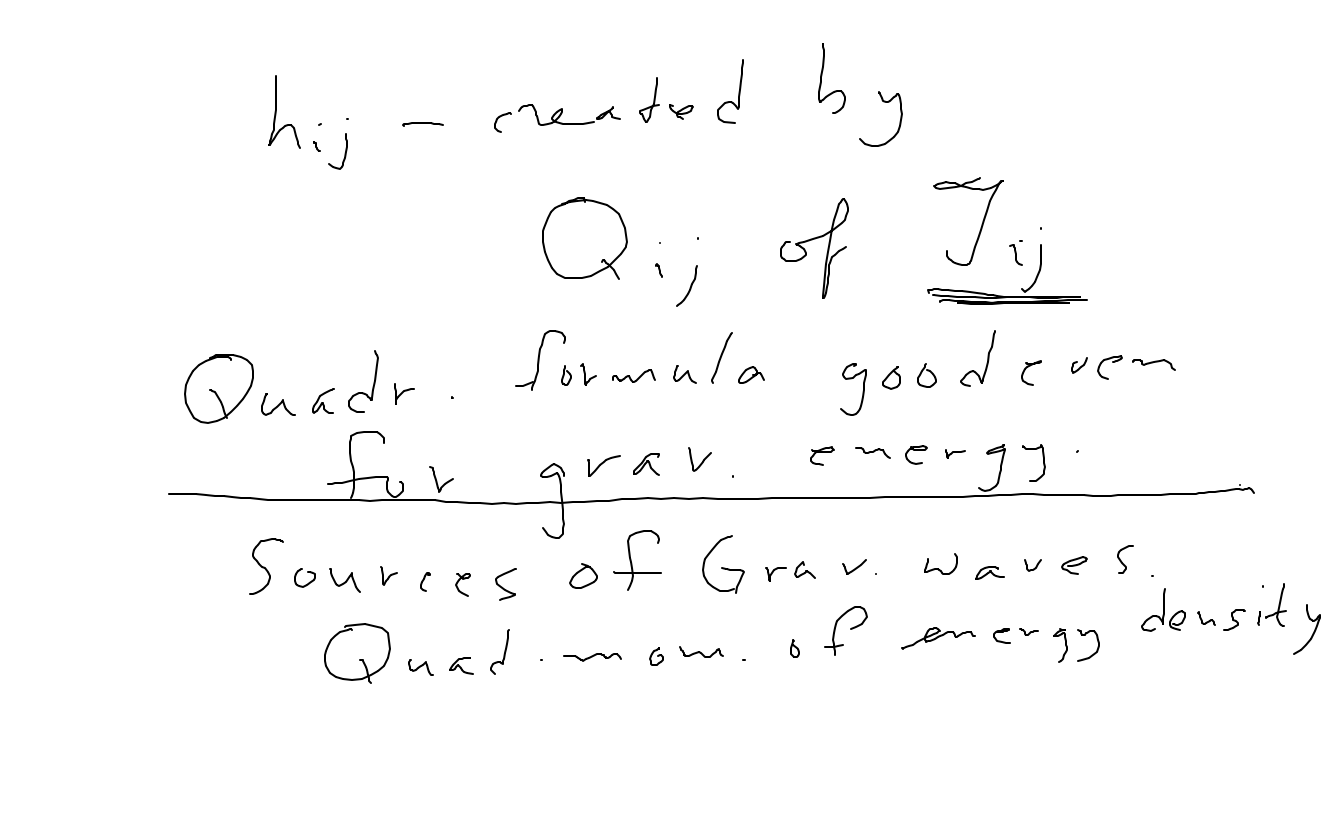 hij - created by
Qij of Tij
Quadr. formula good even
for grav. energy.
Sources of Grav. waves.
Quad. mom. of energy density